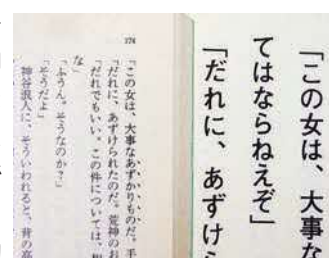 「この女は、大事な
てはならねえぞ」
「だれに、あずけら
274
「この女は、大事なあずかりものだ。手
「だれに、あずけられたのだ。荒神のお
「だれでもいい。この件については、
な」
「ふうん。そうなのか?」
「そうだよ」
神谷浪人に、そういわれると、背の高